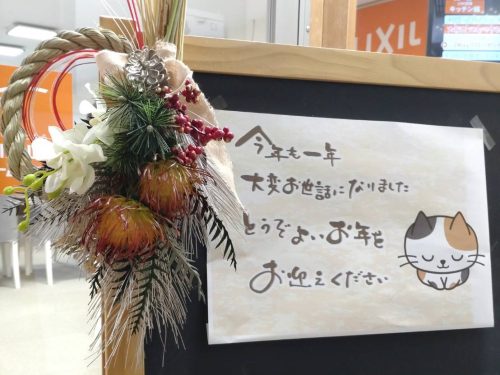 LIXIL
キッチン館
今年も一年
大変お世話になりました
どうぞよいお年を
お迎えください